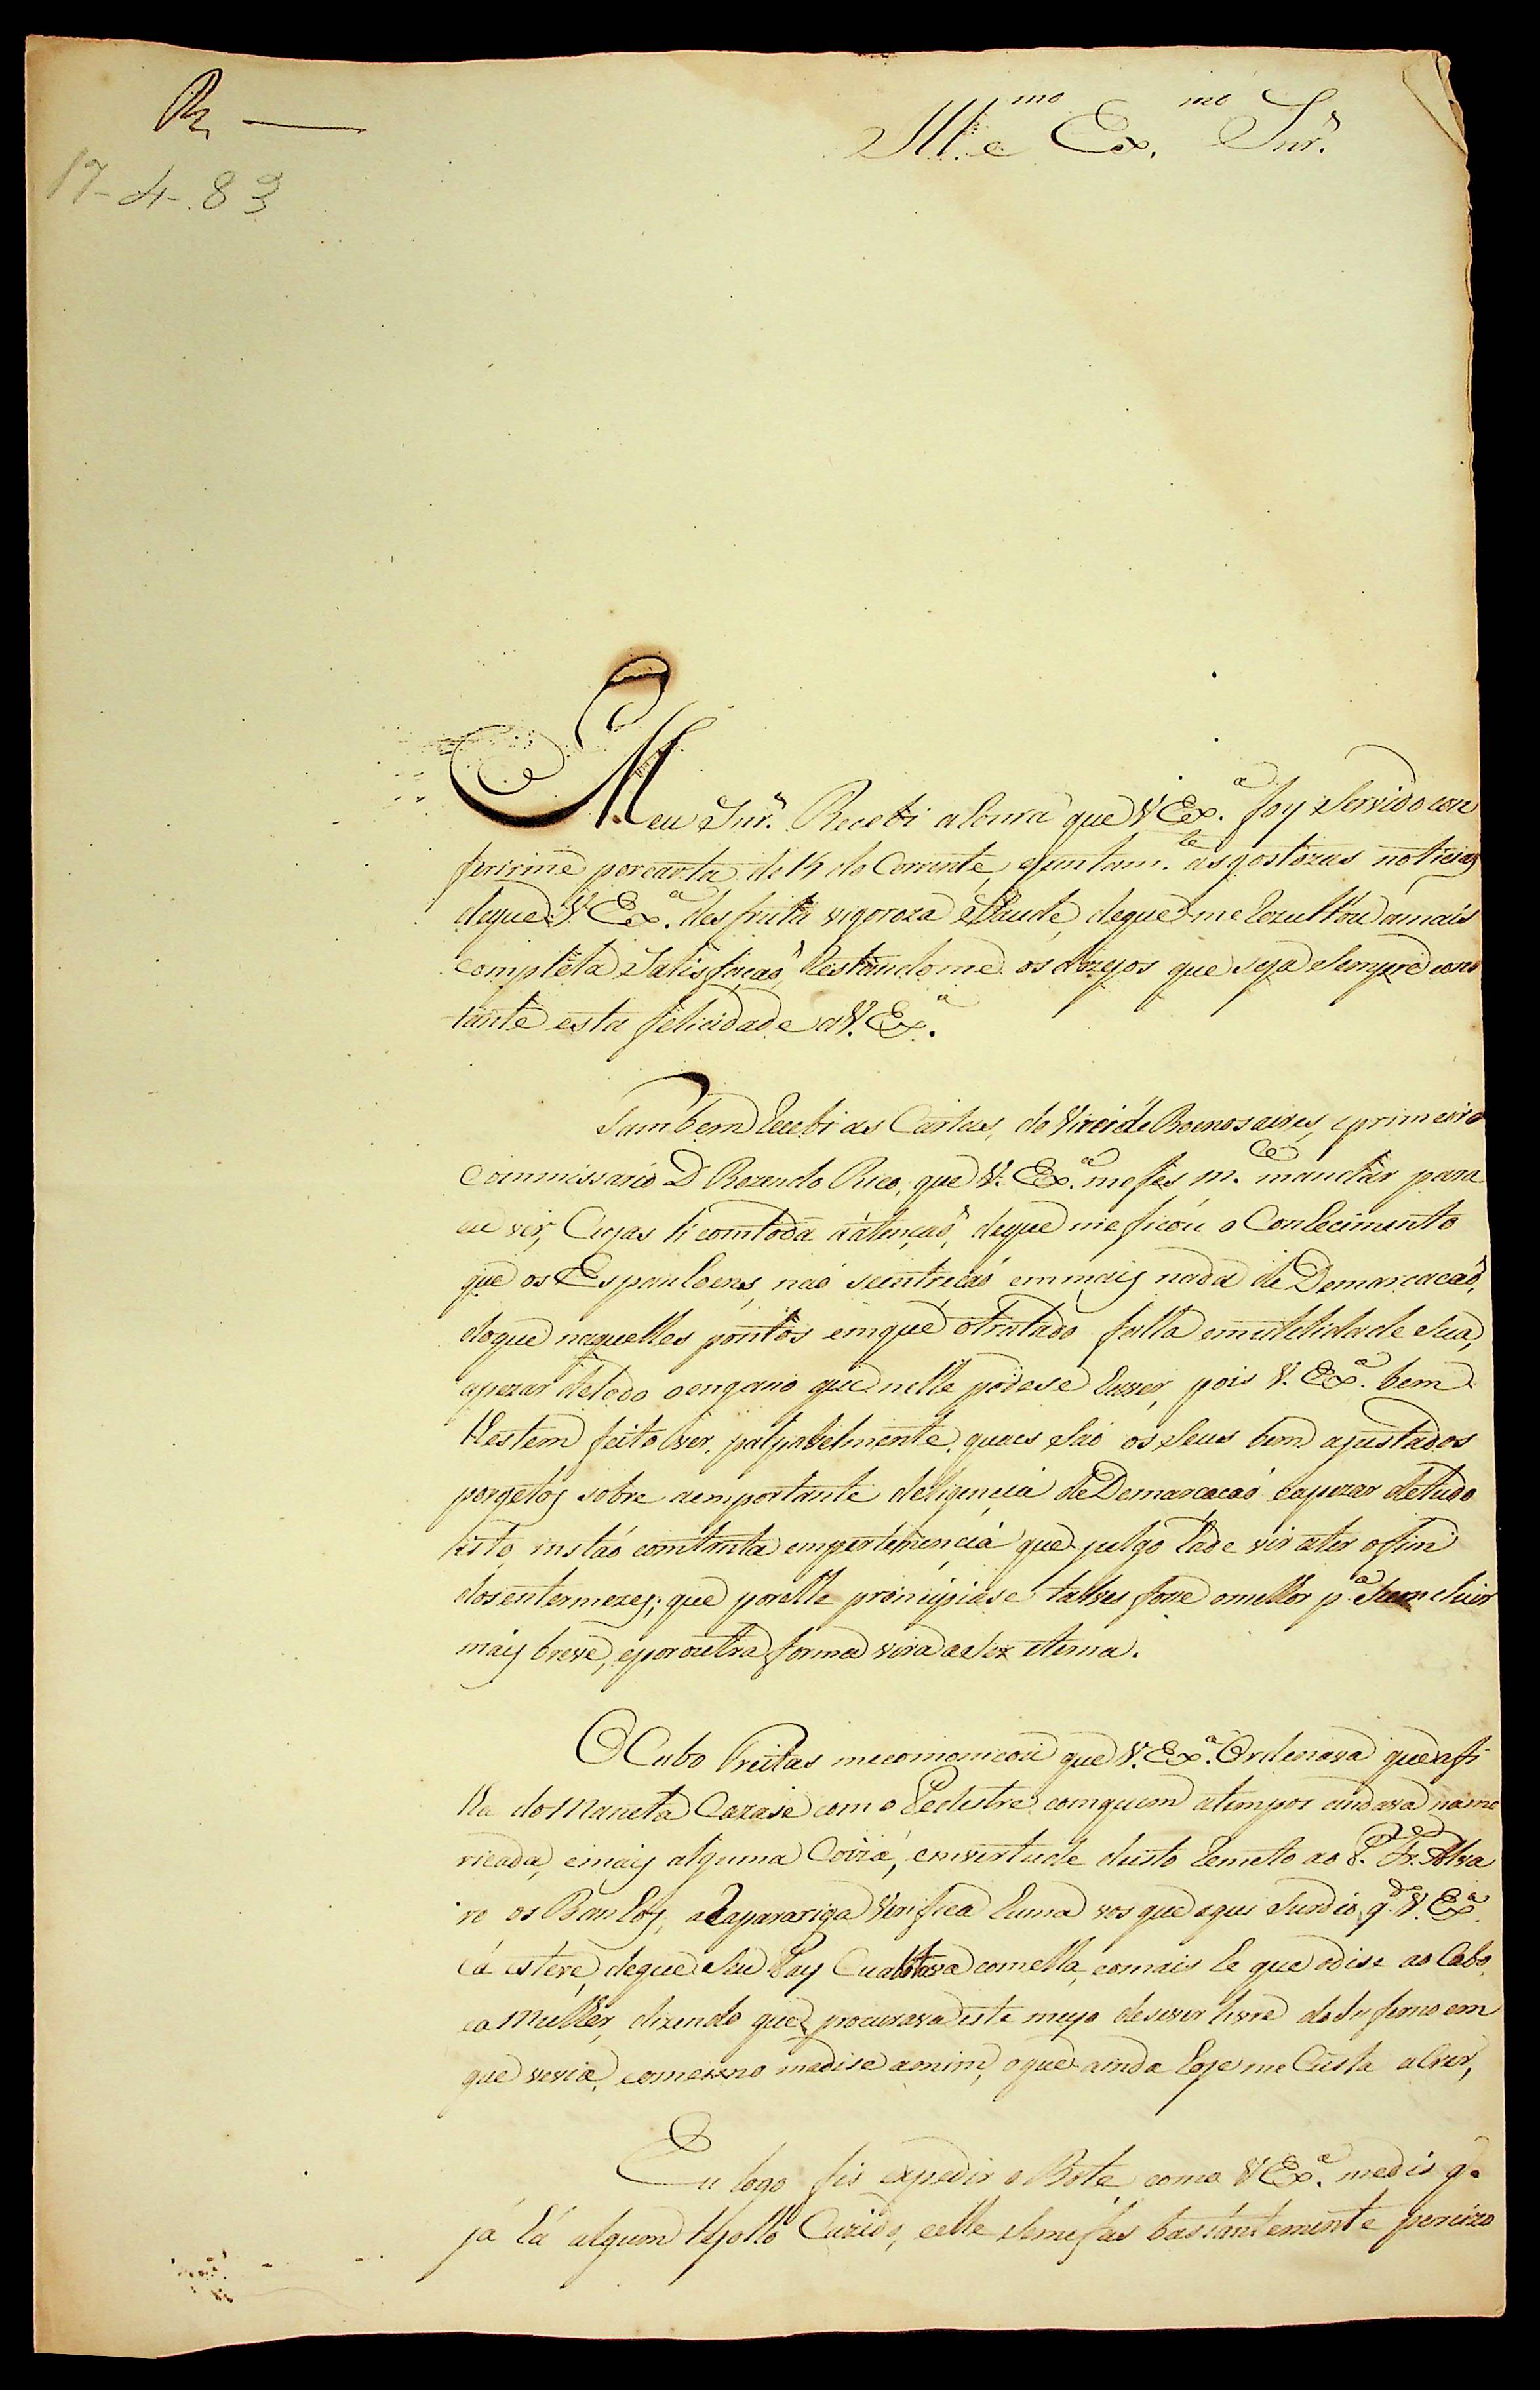 R.
17-4-83
Ill.mo e Ex.mo Snr.
Meu Snr. Recebi a honra que V. Ex.a foy Servido con
ferirme por carta de 14 do Corrente, ejuntam.te as gostozas noticias
deque V. Ex.a desfruta vigoroza Saude, deque me rezultou amais
completa Satisfaçaõ, Restandome os dezejos que seja Sempre cons
tante esta felicidade a V. Ex.a
Tambem recebi as Cartas, do Virei de Boenos aires, eprimeiro
Commissario D. Rozendo Rico, que V. Ex.a mefes m.ce mandar para
eu ver, Cujas li comtoda aatençaõ, deque me ficou o Conhecimento
que os Espanhoens, naõ seentreçaõ emmais nada de Demarcacaõ,
doque naquelles pontos emque otratado falla emutelidade Sua,
apezar detodo oengano que nelle podese haver, pois V. Ex.a bem
lhestem feito ver palpavelmente quaes Saõ os Seus bem ajustados
porgetos sobre aemportante deligencia de Demarcacaõ eapezar detudo
isto, instaõ comtanta empertenencia que julgo hade vir ater ofim
dosentermezes; que porelle principiase talves fose omelhor p.a Seconcluir
mais breve, eporoutra forma virá a ser eterna.
O Cabo Freitas mecomonicou que V. Ex.a Ordenava que afi
lha do Maneta Cazase com o Pedestre comquem atempos andava name
ricada, emais alguma Coiza, emvertude disto remeto ao P. Fr. Alva
ro os Banhos, a Rapariga Verifica huma vos que aqui Surdio, q.do V. Ex.a
cá esteve, deque Seu Pay Cuabitava comella, eomais he que odise ao Cabo,
ea Mulher, dizendo que procurava este meyo desever livre do Inferno em
que vevia, eomesmo medise amim, oque ainda hoje me Custa acrer,
Eu logo fis expedir o Bote como V. Ex.a medis q.
já lá algum Cazido, eelle Semefas bastantemente percizo